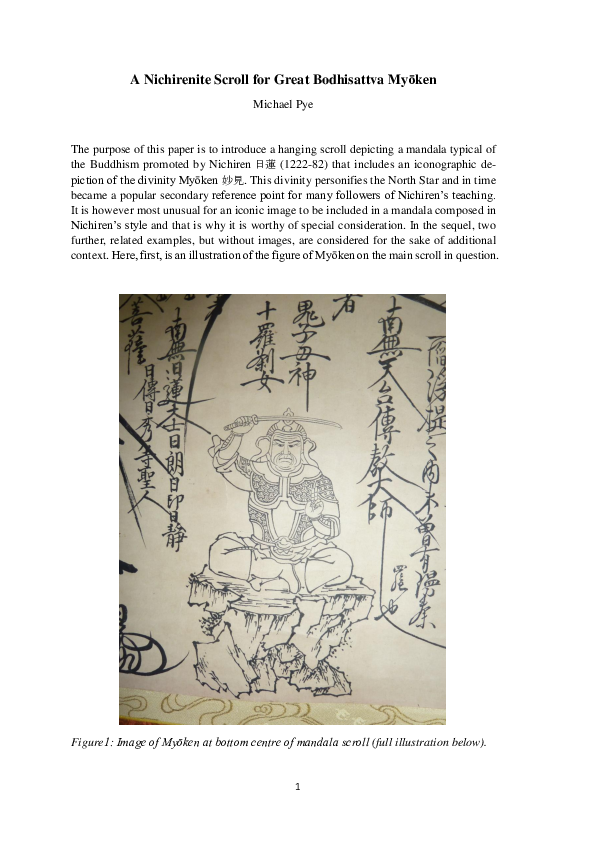 A Nichirenite Scroll for Great Bodhisattva Myōken
Michael Pye
The purpose of this paper is to introduce a hanging scroll depicting a mandala typical of
the Buddhism promoted by Nichiren 日蓮 (1222-82) that includes an iconographic de-
piction of the divinity Myōken 妙見. This divinity personifies the North Star and in time
became a popular secondary reference point for many followers of Nichiren's teaching.
It is however most unusual for an iconic image to be included in a mandala composed in
Nichiren's style and that is why it is worthy of special consideration. In the sequel, two
further, related examples, but without images, are considered for the sake of additional
context. Here, first, is an illustration of the figure of Myōken on the main scroll in question.
閻浮提之内未曾有
南無天台傳教大師
者
鬼子母神
十羅刹女
南無日蓮大士日朗日印日靜
菩薩
日傳日秀
聖人
Figure1: Image of Myōken at bottom centre of mandala scroll (full illustration below).
1